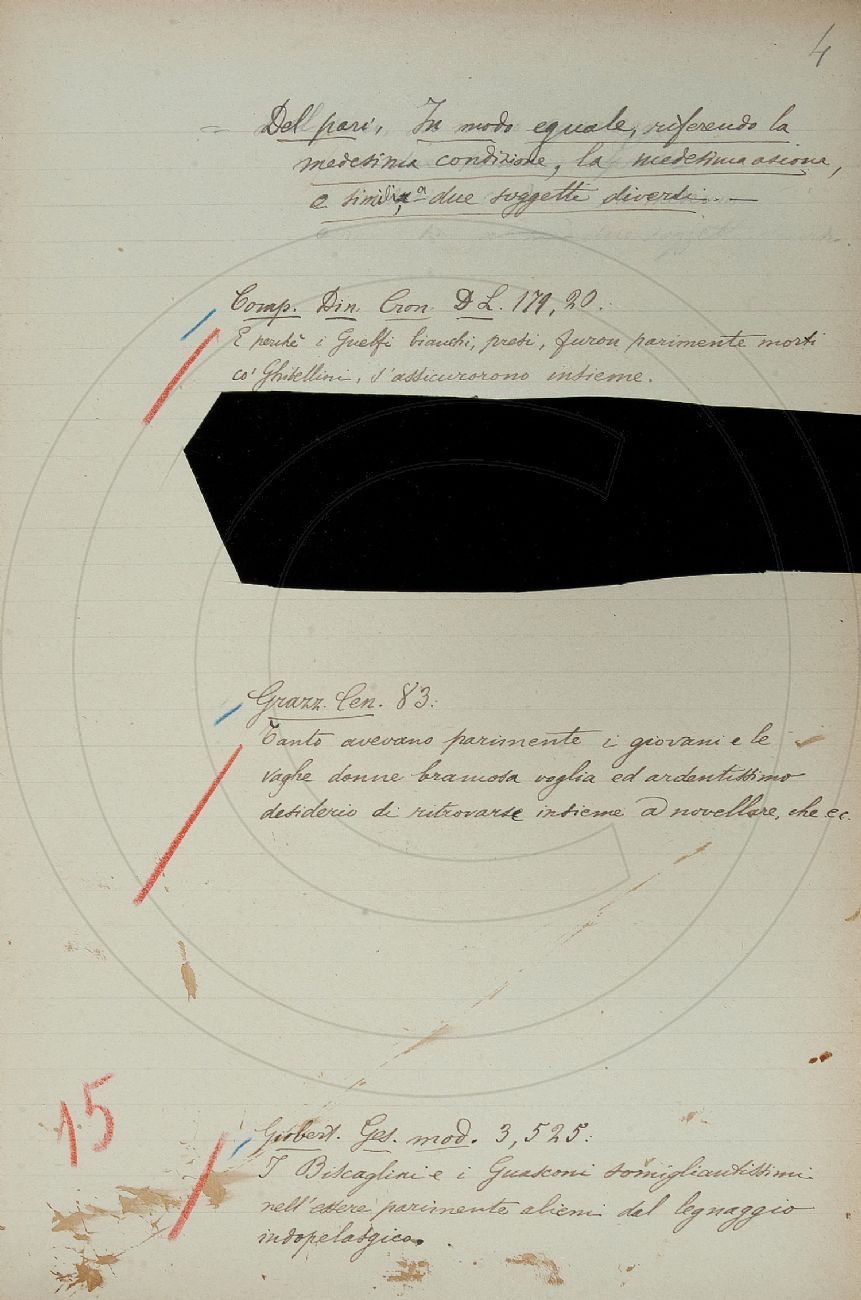 4
= Del pari, In modo eguale, riferendo la
medesima condizione, la medesima azione,
e simili, a due soggetti diversi. —
Comp. Din. Cron. D L. 179, 20.:
E perchè i Guelfi bianchi, presi, furon parimente morti
co' Ghibellini, s'assicurorono insieme.
Grazz. Cen. 83:
Tanto avevano parimente i giovani e le
vaghe donne bramosa voglia ed ardentissimo
desiderio di ritrovarse insieme a novellare, che ec.
15
Giobert. Ges. mod. 3, 525:
I Biscaglini e i Guasconi somigliantissimi
nell'essere parimente alieni dal legnaggio
indopelasgico.